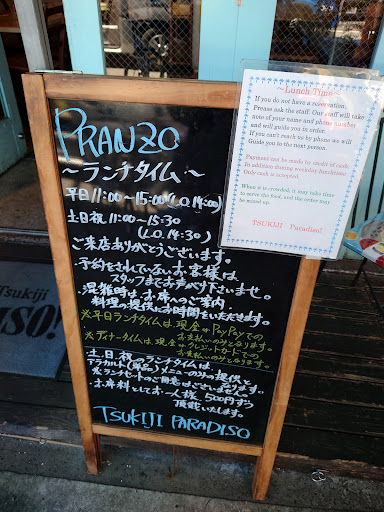 PRANZO
~ランチタイム~
平日11:00~15:00(L.O.14:00)
土日祝11:00~15:30
(L.O.14:30)
ご来店ありがとうございます。
予約をされていないお客様は
スタッフまでお声がけ下さいませ。
混雑時はお席へのご案内
料理の提供にお時間をいただきます。
※平日ランチタイムは現金orPayPayでの
お支払いのみとなります。
※ディナータイムは現金orクレジットカードでの
お支払いのみとなります。
土日祝のランチタイムは
アラカルト(単品)メニューのみの提供となります。
※ランチセットのご用意はございません。
お席料としてお一人様500円ずつ
頂戴いたします。
TSUKIJI PARADISO
~Lunch Time~
If you do not have a reservation,
Please ask the staff. Our staff will take
note of your name and phone number
and will guide you in order.
If you can't reach by phone we will
Guide you to the next person.
Payment can be made by credit or cash.
In addition during weekday lunchtime
Only cash is accepted.
When it is crowded, it may take time
to serve the food, and the order may
be mixed up.
TSUKIJI Paradiso!
Tsukiji
ISO!